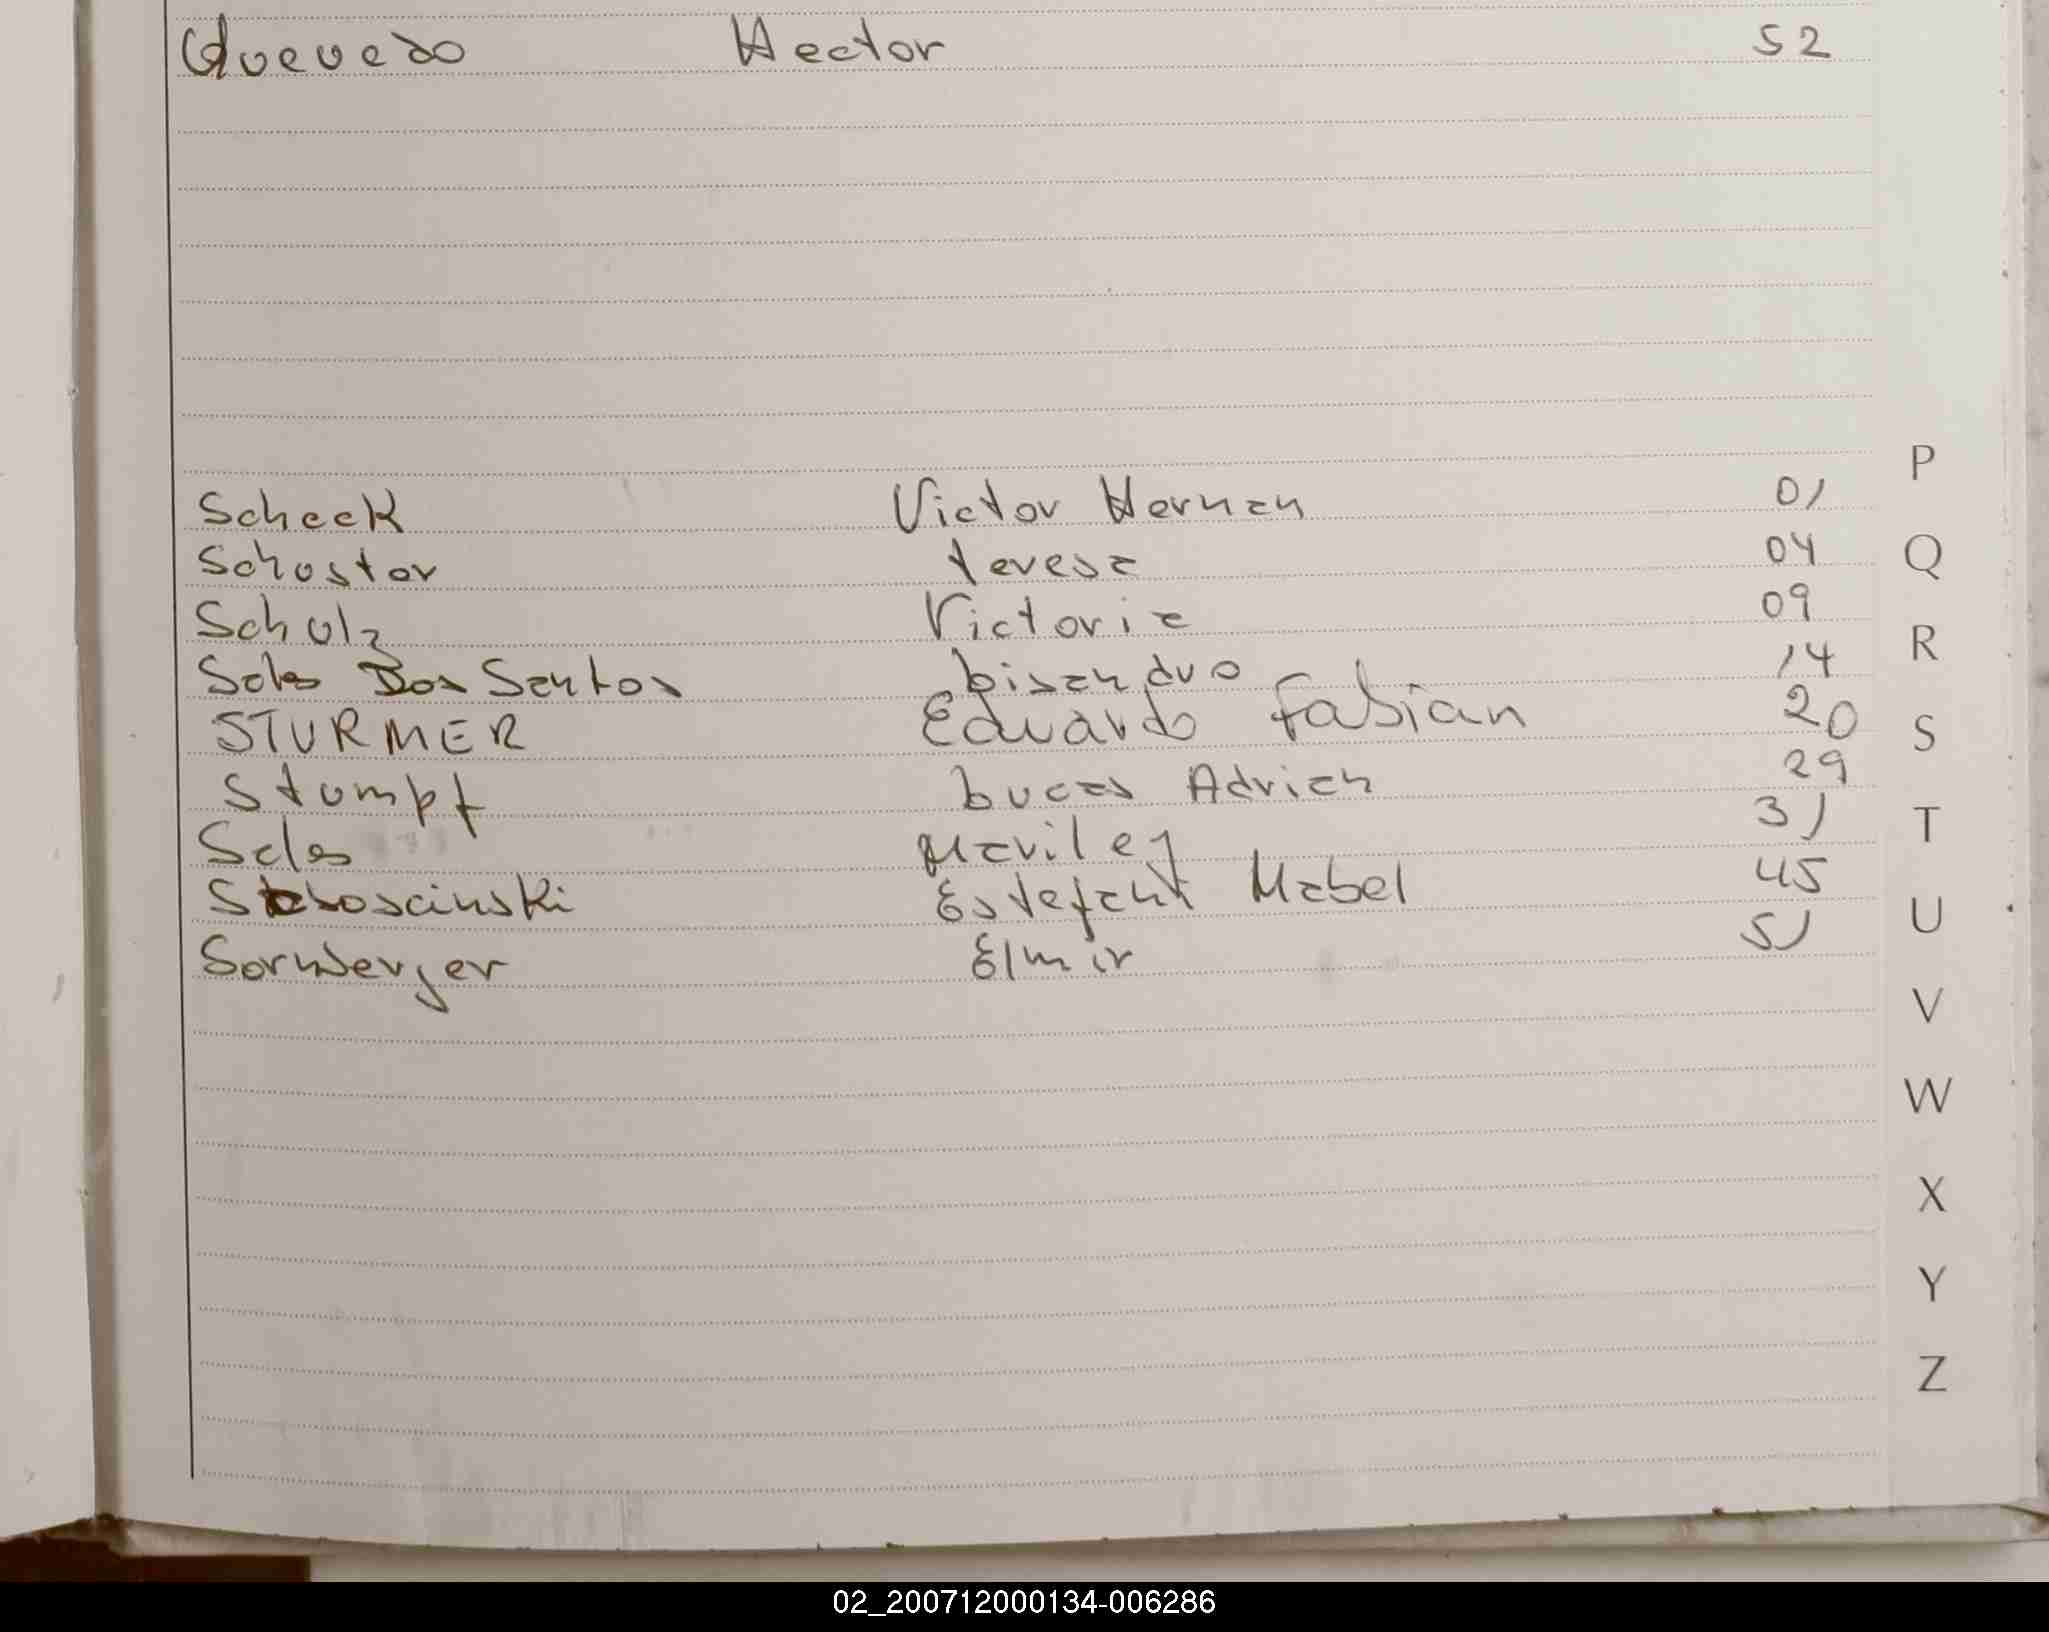 Quevedo Hector 52
Scheek Victor Hernan 01
Schuster teresa 04
Schulz Victoria 09
Sales Dos Santos Lisandro 14
STURMER Eduardo Fabian 20
Stumpf Lucas Adrian 29
Sales Mariley 31
Estefani Mabel 45
Sornberger Elmir 51
P
Q
R
S
T
U
V
W
X
Y
Z
02_200712000134-006286